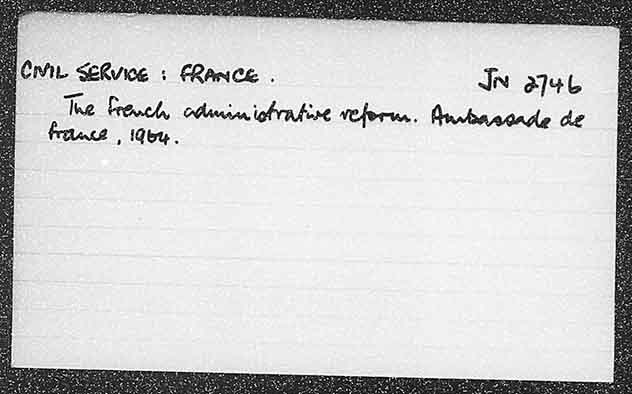 CIVIL SERVICE : FRANCE . JN 2746
The French administrative reform. Ambassade de
France, 1964.